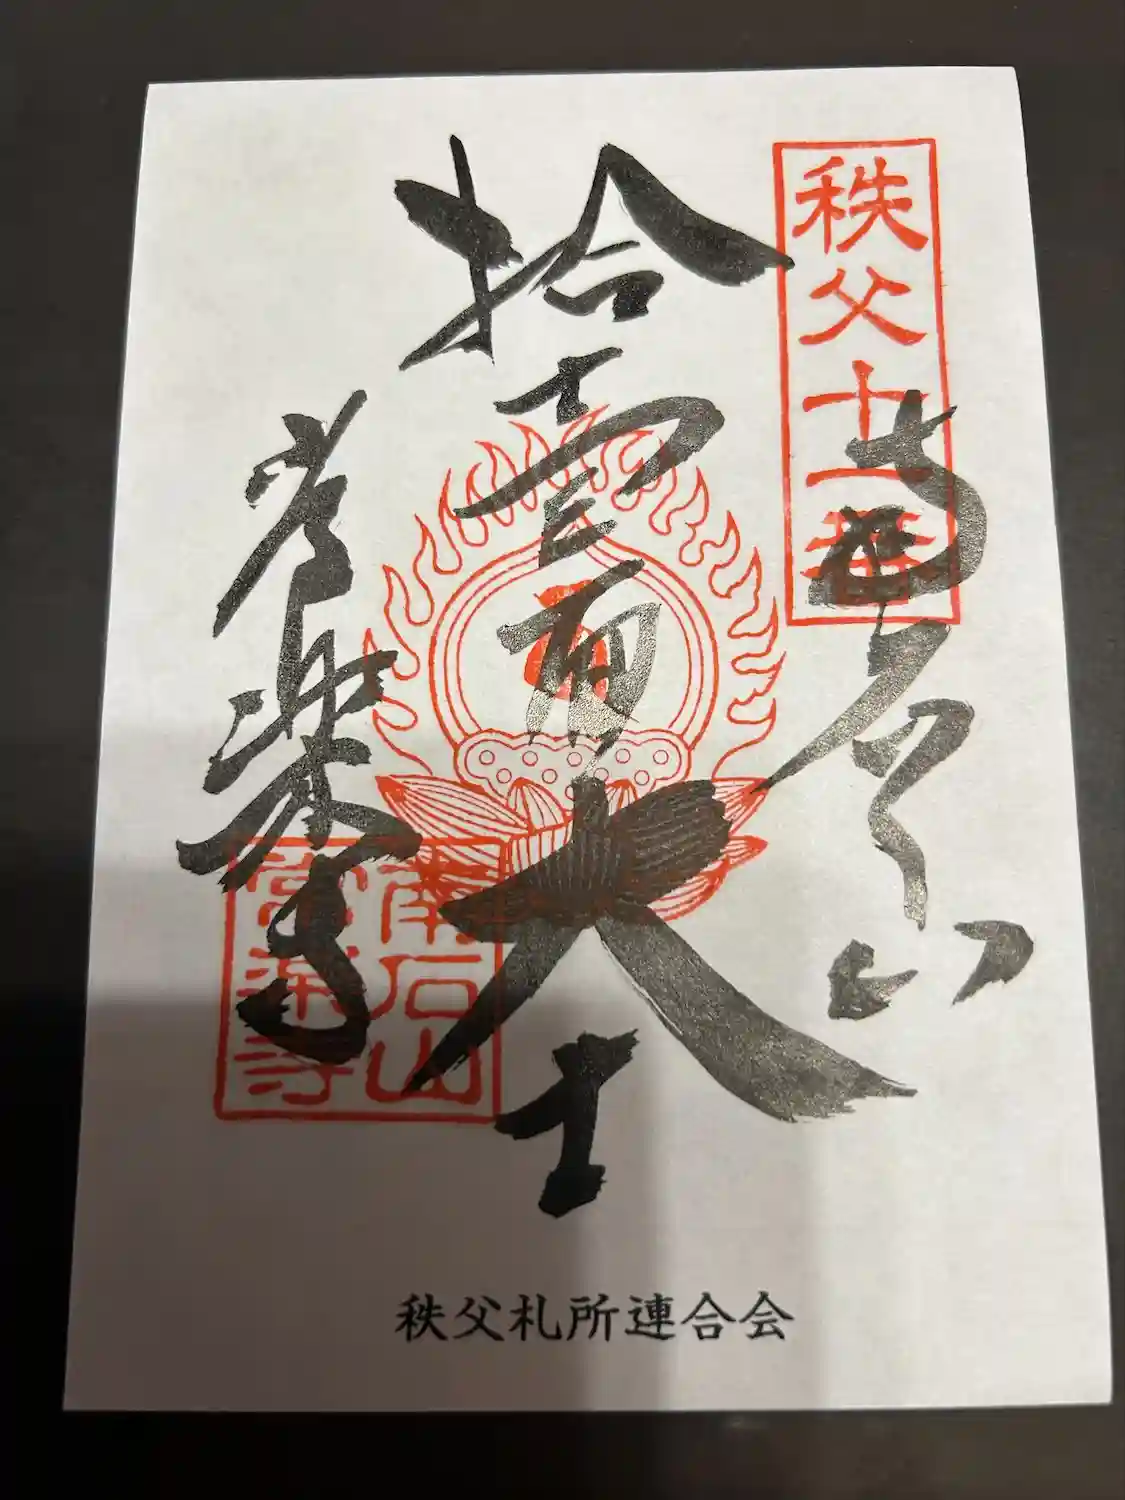 秩父十一番
南石山
拾壹面大士
常楽寺
南石山
常楽寺
秩父札所連合会